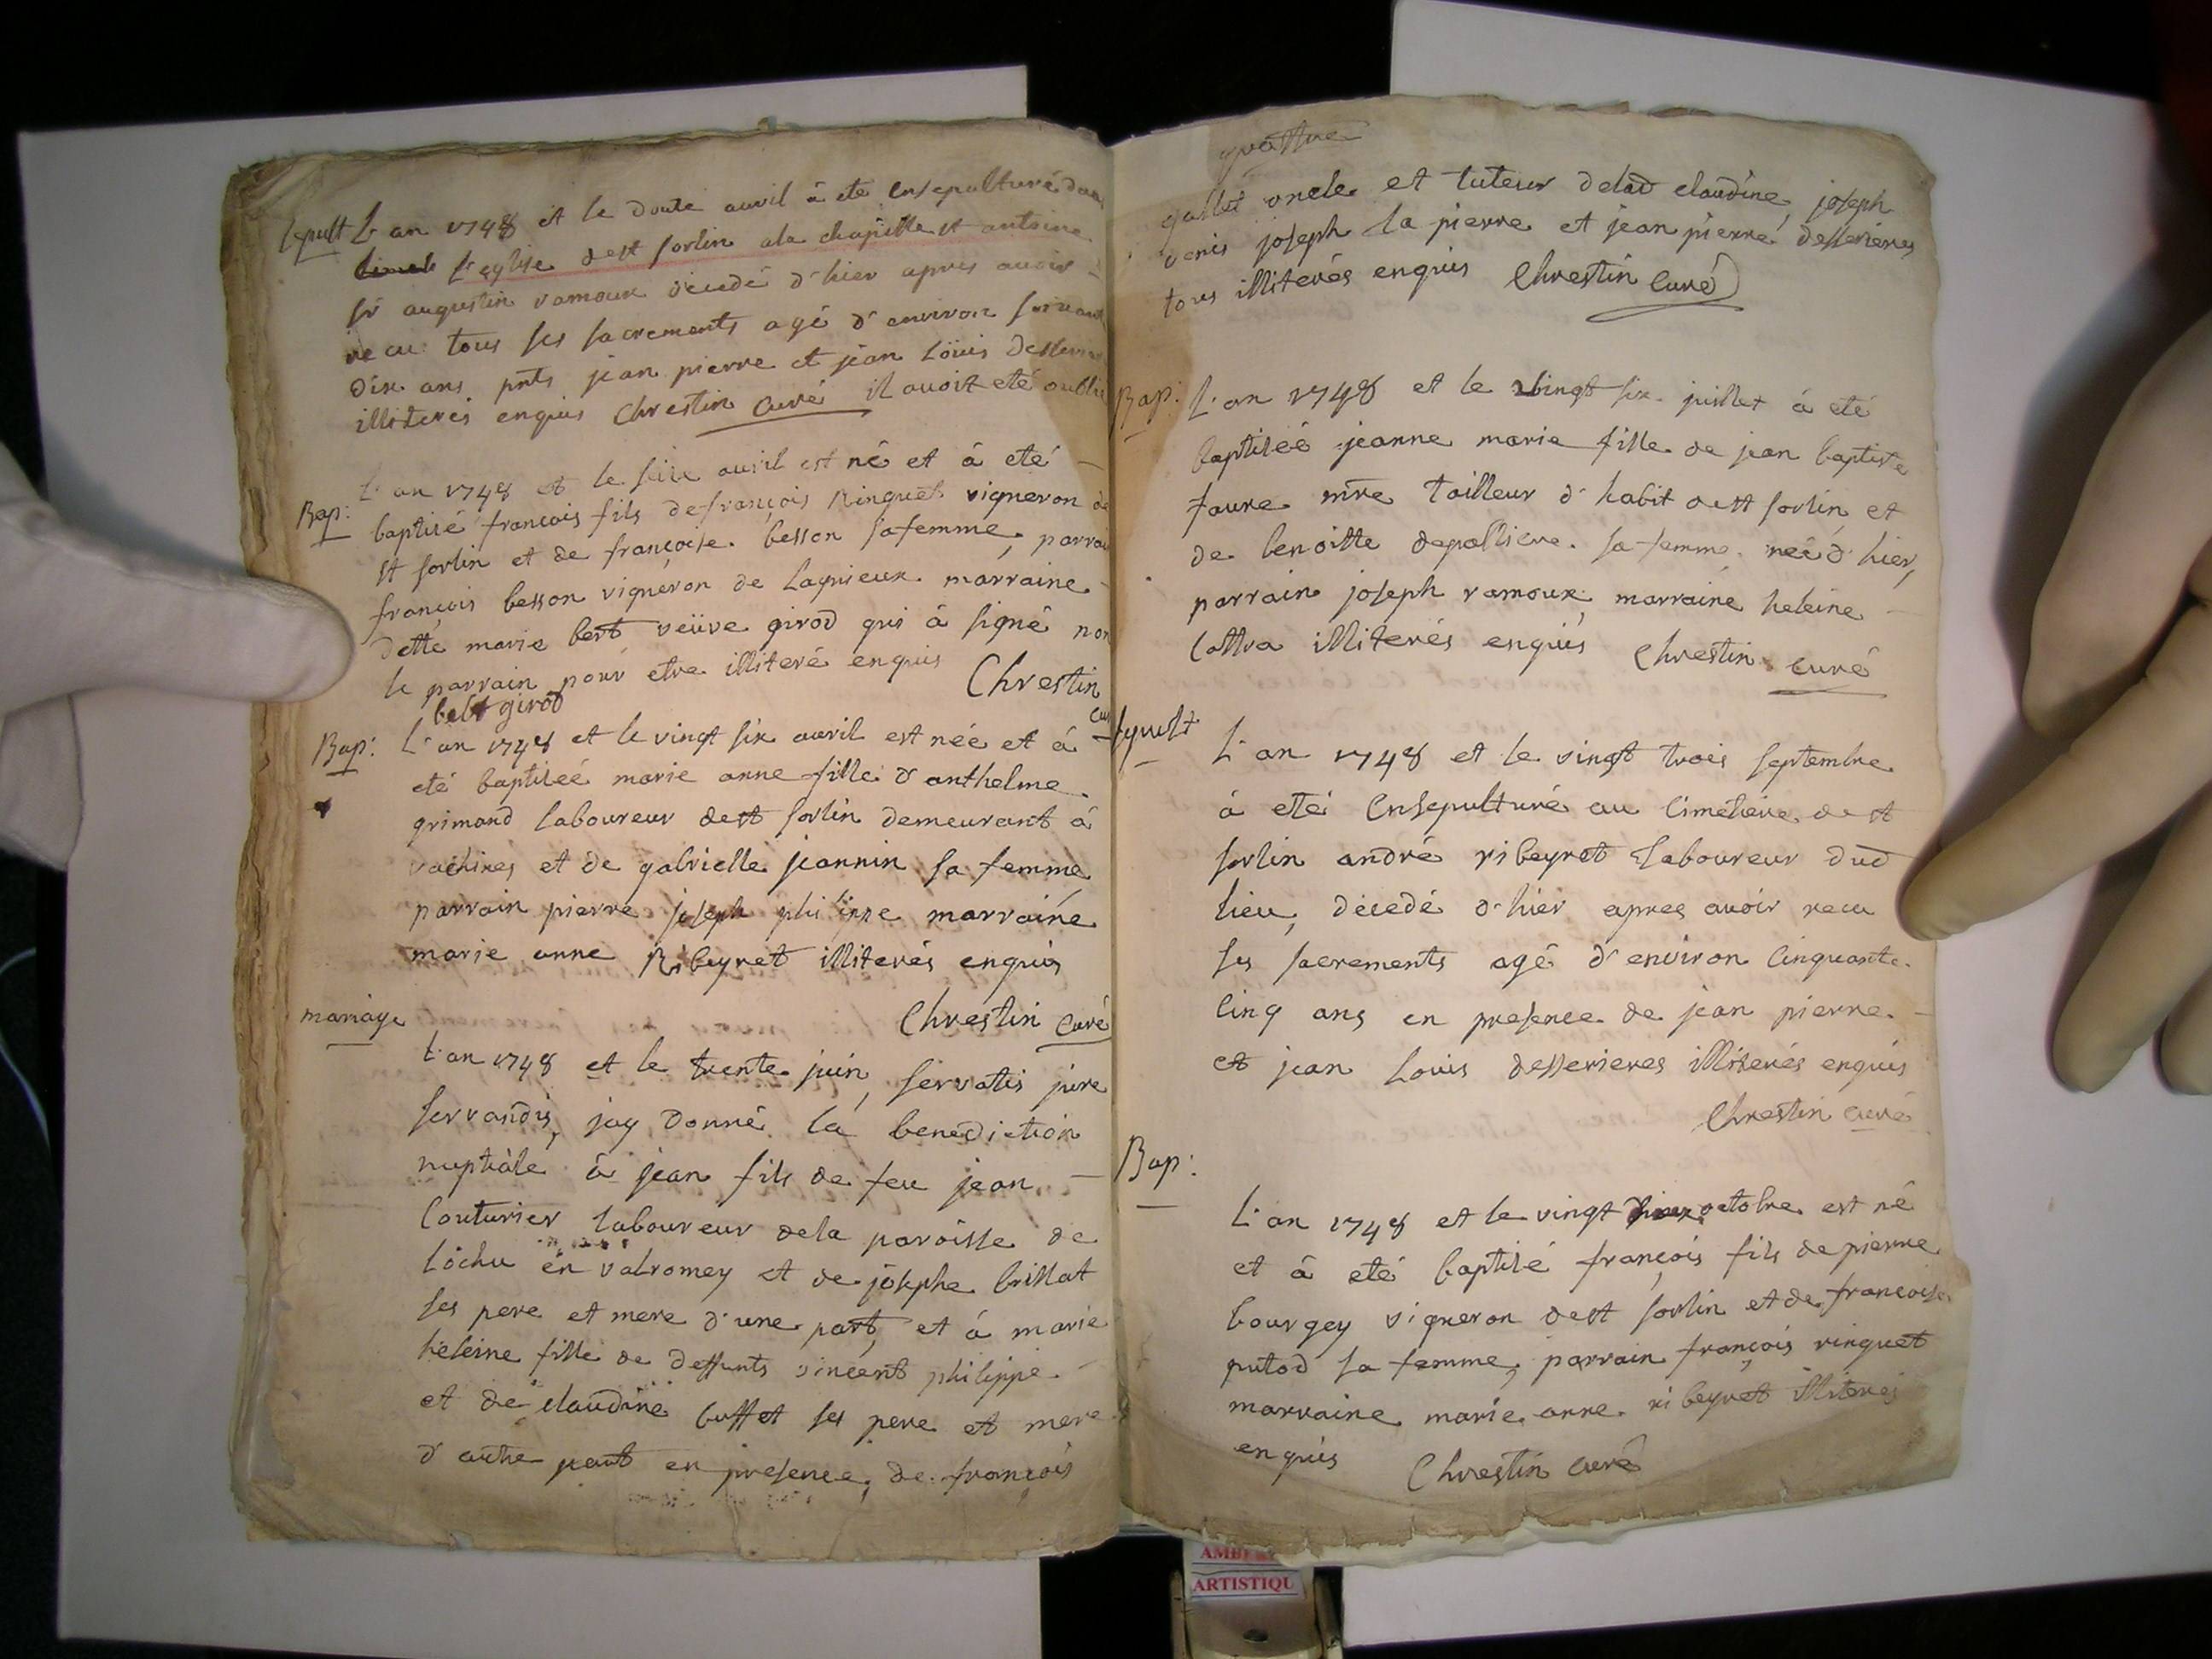 Sepult L'an 1748 et le douze auril à eté ensepulturé dans
l'eglise dest sorlin ala chapelle st antoine
sr augustin ramoux decedé d'hier apres auoir
recu tous ses sacrements agé d'environ soixante
dix ans pnts jean pierre et jean loüis desserieres
illiterés enquis Chrestin curé il auoit eté oublié
Bap: L'an 1748 et le seize auril est né et à eté
baptisé francois fils de françois Ringuet vigneron de
st sorlin et de françoise besson sa femme, parrain
françois besson vigneron de Lagnieux marraine
dette marie bert veüve girod qui à signé non
le parrain pour etre illiteré enquis Chrestin
girod
curé
Bap: L'an 1748 et le vingt six auril est née et à
eté baptiseé marie anne fille d'anthelme
grimand laboureur dest sorlin demeurant à
vachires et de gabrielle jeannin sa femme
parrain pierre joseph philippe marraine
marie anne Ribeyret illiterés enquis
Chrestin curé
mariage
L'an 1748 et le trente juin, servatis jure
servandis, jay donné la benediction
nuptiale à jean fils de feu jean
Couturier laboureur dela paroisse de
lochu en valromey et de josephe brillat
ses pere et mere d'une part, et à marie
heleine fille de deffunts vincent philippe
et de claudine buffet ses pere et mere
d'autre part en presence, de françois
gallet oncle et tuteur delad claudine, joseph
venis joseph la pierre et jean pierre desserieres
tous illiterés enquis Chrestin curé
Bap: L'an 1748 et le vingt six juillet à eté
baptiseé jeanne marie fille de jean baptiste
faure mre tailleur d'habit dest sorlin et
de benoitte depalliere sa femme neé d'hier,
parrain joseph ramoux, marraine heleine
cottra illiterés enquis Chrestin curé
sepult
L'an 1748 et le vingt trois septembre
à eté ensepulturé au cimetiere dest
sorlin andré ribeyret laboureur dud
lieu, decedé d'hier apres auoir recu
ses sacrements agé d'environ cinquante
cinq ans en presence de jean pierre
et jean louis desserieres illiterés enquis
Chrestin curé
Bap:
L'an 1748 et le vingt octobre est né
et à eté baptisé françois fils de pierre
bourgey vigneron dest sorlin et de françoise
putod sa femme, parrain françois ringuet
marraine marie anne ribeyret illiterés
enquis Chrestin curé
AMBE
ARTISTIQU